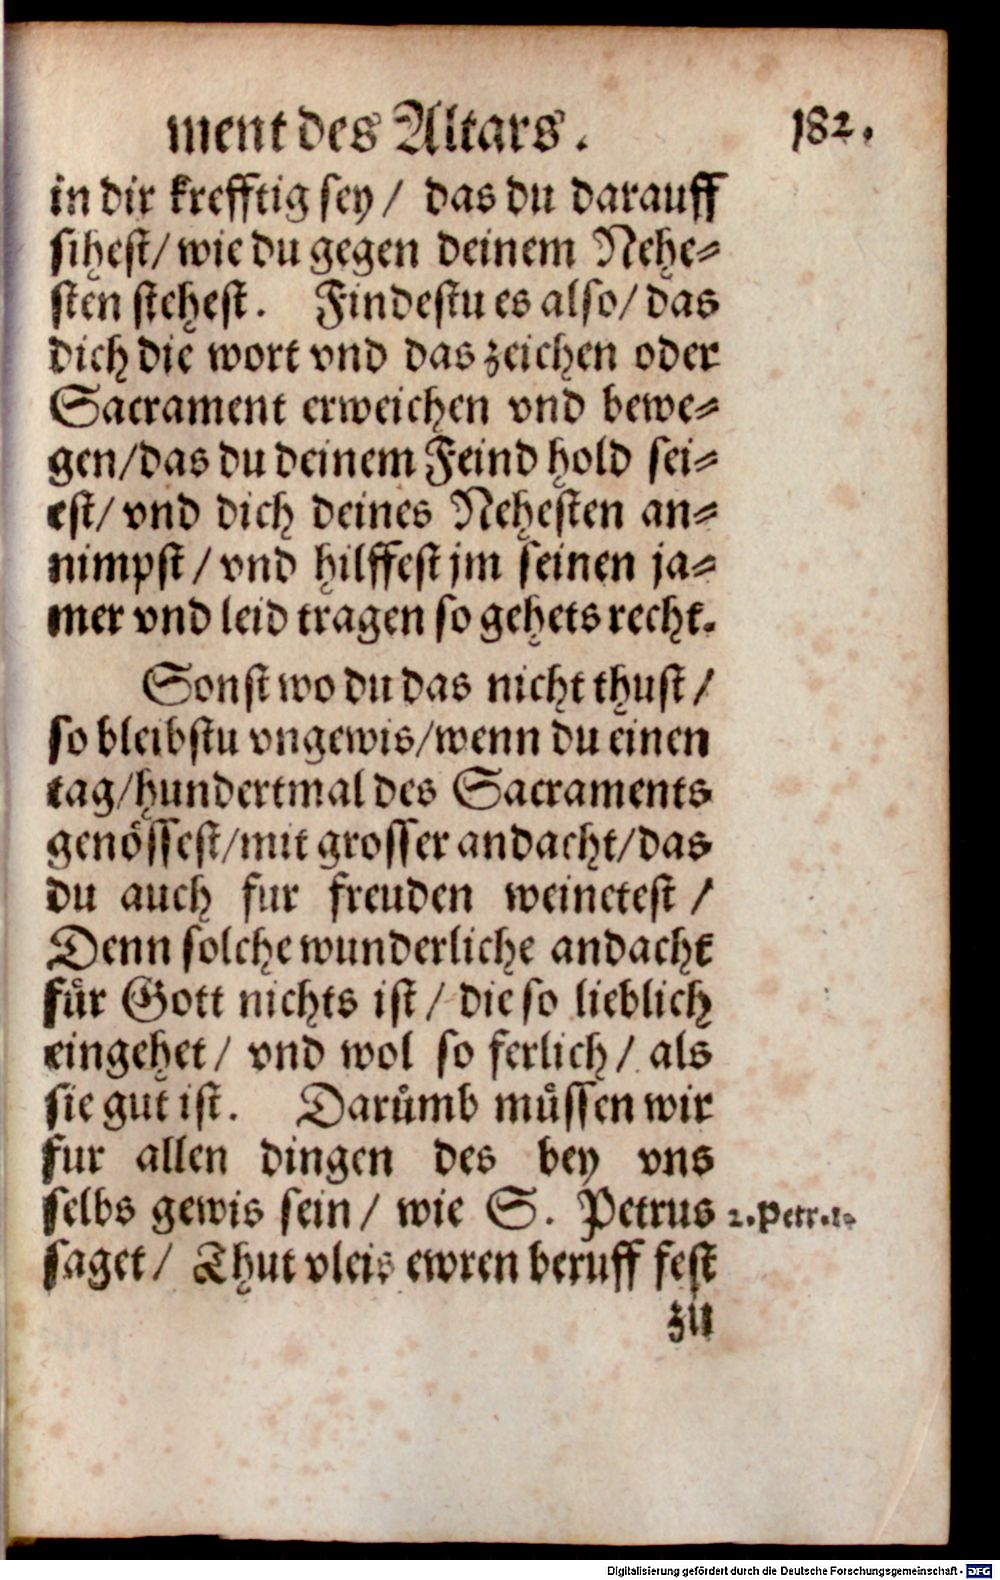 ment des Altars. 182.
in dir krefftig sey / das du darauff
sihest / wie du gegen deinem Nehe-
sten stehest. Findestu es also / das
dich die wort vnd das zeichen oder
Sacrament erweichen vnd bewe-
gen / das du deinem Feind hold sei-
est / vnd dich deines Nehesten an-
nimpst / vnd hilffest jm seinen ja-
mer vnd leid tragen so gehets recht.
Sonst wo du das nicht thust /
so bleibstu vngewis / wenn du einen
tag / hundertmal des Sacraments
genössest / mit grosser andacht / das
du auch fur freuden weinetest /
Denn solche wunderliche andacht
fuͤr Gott nichts ist / die so lieblich
eingehet / vnd wol so ferlich / als
sie gut ist. Daruͤmb muͤssen wir
fur allen dingen des bey vns
selbs gewis sein / wie S. Petrus 2. Petr. 1.
saget / Thut vleis ewren beruff fest
zu
Digitalisierung gefördert durch die Deutsche Forschungsgemeinschaft - DFG